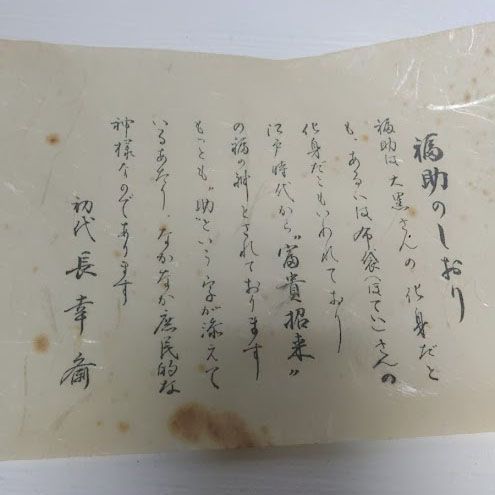 福助のしおり
福助は大黒さんの化身だと
も、あるいは布袋(ほてい)さんの
化身だともいわれており
江戸時代から〝富貴招来〟
の福の神とされております
もっとも〝助〟という字が添えて
いるあたり、なかなか庶民的な
神様なのであります
初代 長幸斎